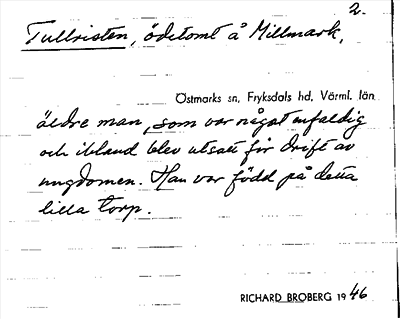 2.
Tullristen, ödetomt å Millmark,
Östmarks sn, Fryksdals hd, Värml. län
äldre man, som var något enfaldig
och ibland blev utsatt för drift av
ungdomen. Han var född på detta
lilla torp.
RICHARD BROBERG 1946